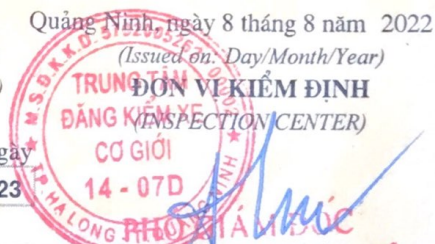 Quảng Ninh, ngày 8 tháng 8 năm 2022
(Issued on: Day/Month/Year)
ĐƠN VỊ KIỂM ĐỊNH
(INSPECTION CENTER)
TRUNG TÂM
ĐĂNG KIỂM XE
CƠ GIỚI
14 - 07D
M.S.Đ.K.K.D:
TP. HẠ LONG
gày
23
PHÓ GIÁM ĐỐC